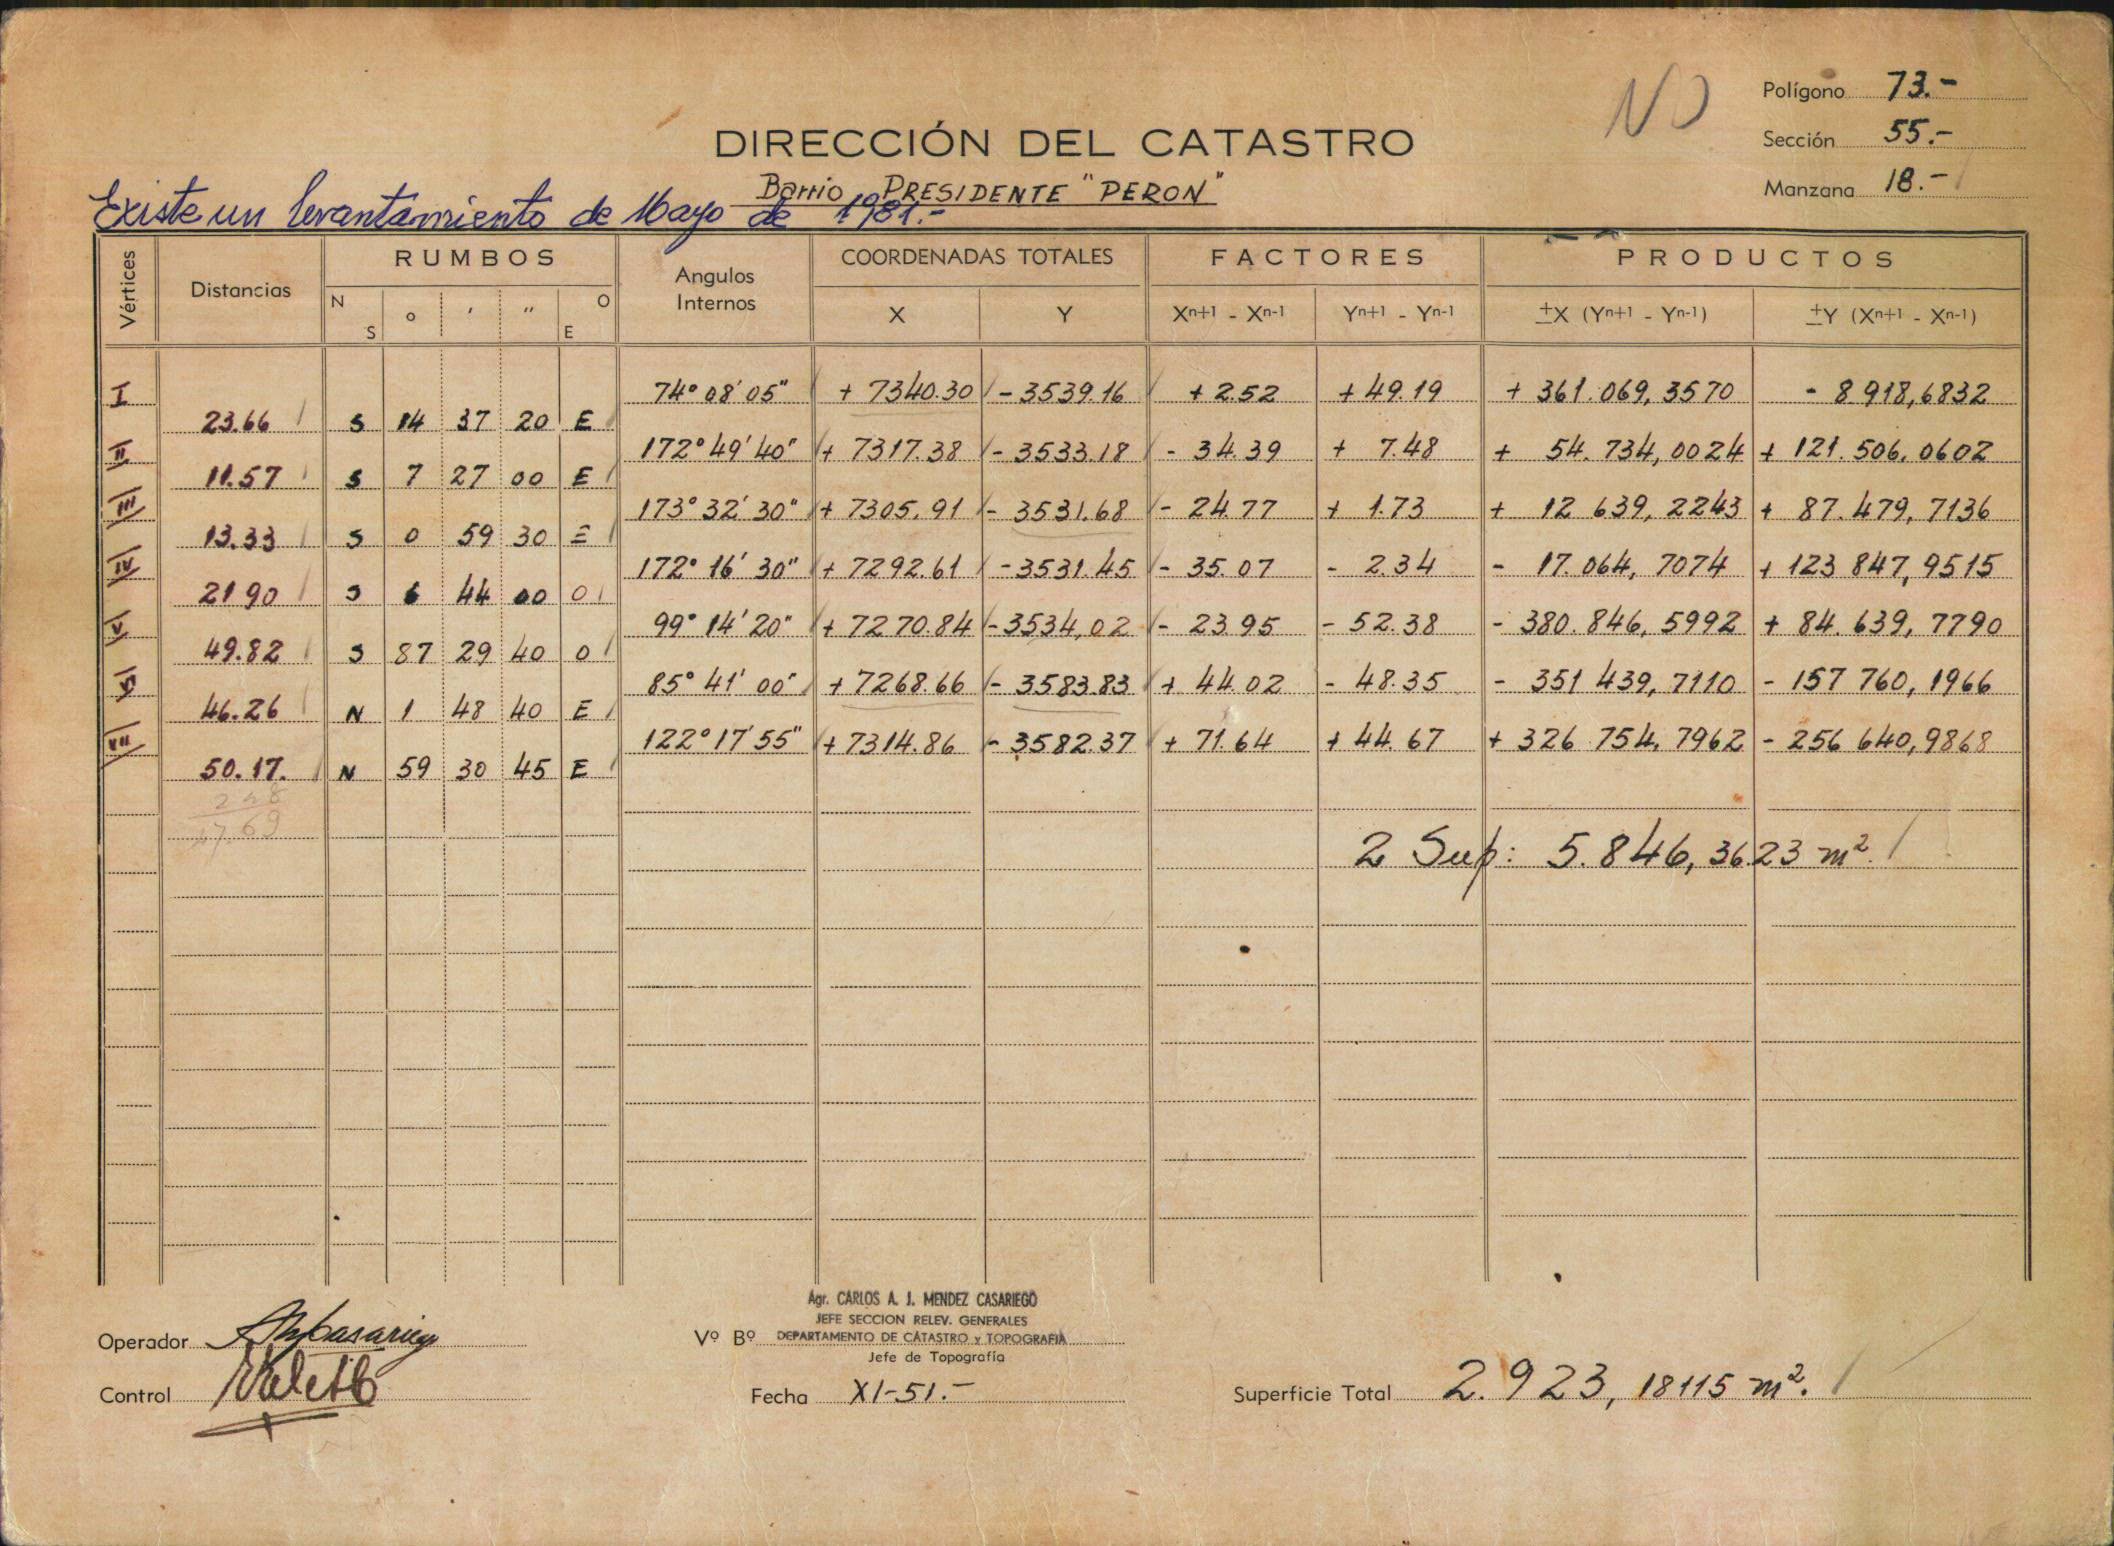 NO
Polígono 73.-
Sección 55.-
Manzana 18.-
DIRECCIÓN DEL CATASTRO
Barrio PRESIDENTE "PERON"
Existe un levantamiento de Mayo de 1981.-
Vértices Distancias RUMBOS Angulos Internos COORDENADAS TOTALES FACTORES PRODUCTOS
N S ° ' " O E X Y Xn+1 - Xn-1 Yn+1 - Yn-1 ±X (Yn+1 - Yn-1) ±Y (Xn+1 - Xn-1)
I 74° 08' 05" + 7340.30 - 3539.16 + 2.52 + 49.19 + 361.069,3570 - 8.918,6832
23.66 S 14 37 20 E
II 172° 49' 40" + 7317.38 - 3533.18 - 34.39 + 7.48 + 54.734,0024 + 121.506,0602
11.57 S 7 27 00 E
III 173° 32' 30" + 7305.91 - 3531.68 - 24.77 + 1.73 + 12 639,2243 + 87.479,7136
13.33 S 0 59 30 E
IV 172° 16' 30" + 7292.61 - 3531.45 - 35.07 - 2.34 - 17.064,7074 + 123 847,9515
21 90 S 6 44 00 O
V 99° 14' 20" + 7270.84 - 3534,02 - 23.95 - 52.38 - 380.846,5992 + 84.639,7790
49.82 S 87 29 40 O
VI 85° 41' 00" + 7268.66 - 3583.83 + 44.02 - 48.35 - 351 439,7110 - 157 760,1966
46.26 N 1 48 40 E
VII 122° 17' 55" + 7314.86 - 3582.37 + 71.64 + 44.67 + 326 754,7962 - 256 640,9868
50.17. N 59 30 45 E
2 Sup: 5.846,3623 m².
Agr. CARLOS A. J. MENDEZ CASARIEGO
JEFE SECCION RELEV. GENERALES
Operador Vº Bº DEPARTAMENTO DE CATASTRO y TOPOGRAFIA
Jefe de Topografía
Control Fecha XI-51.- Superficie Total 2.923,18115 m².